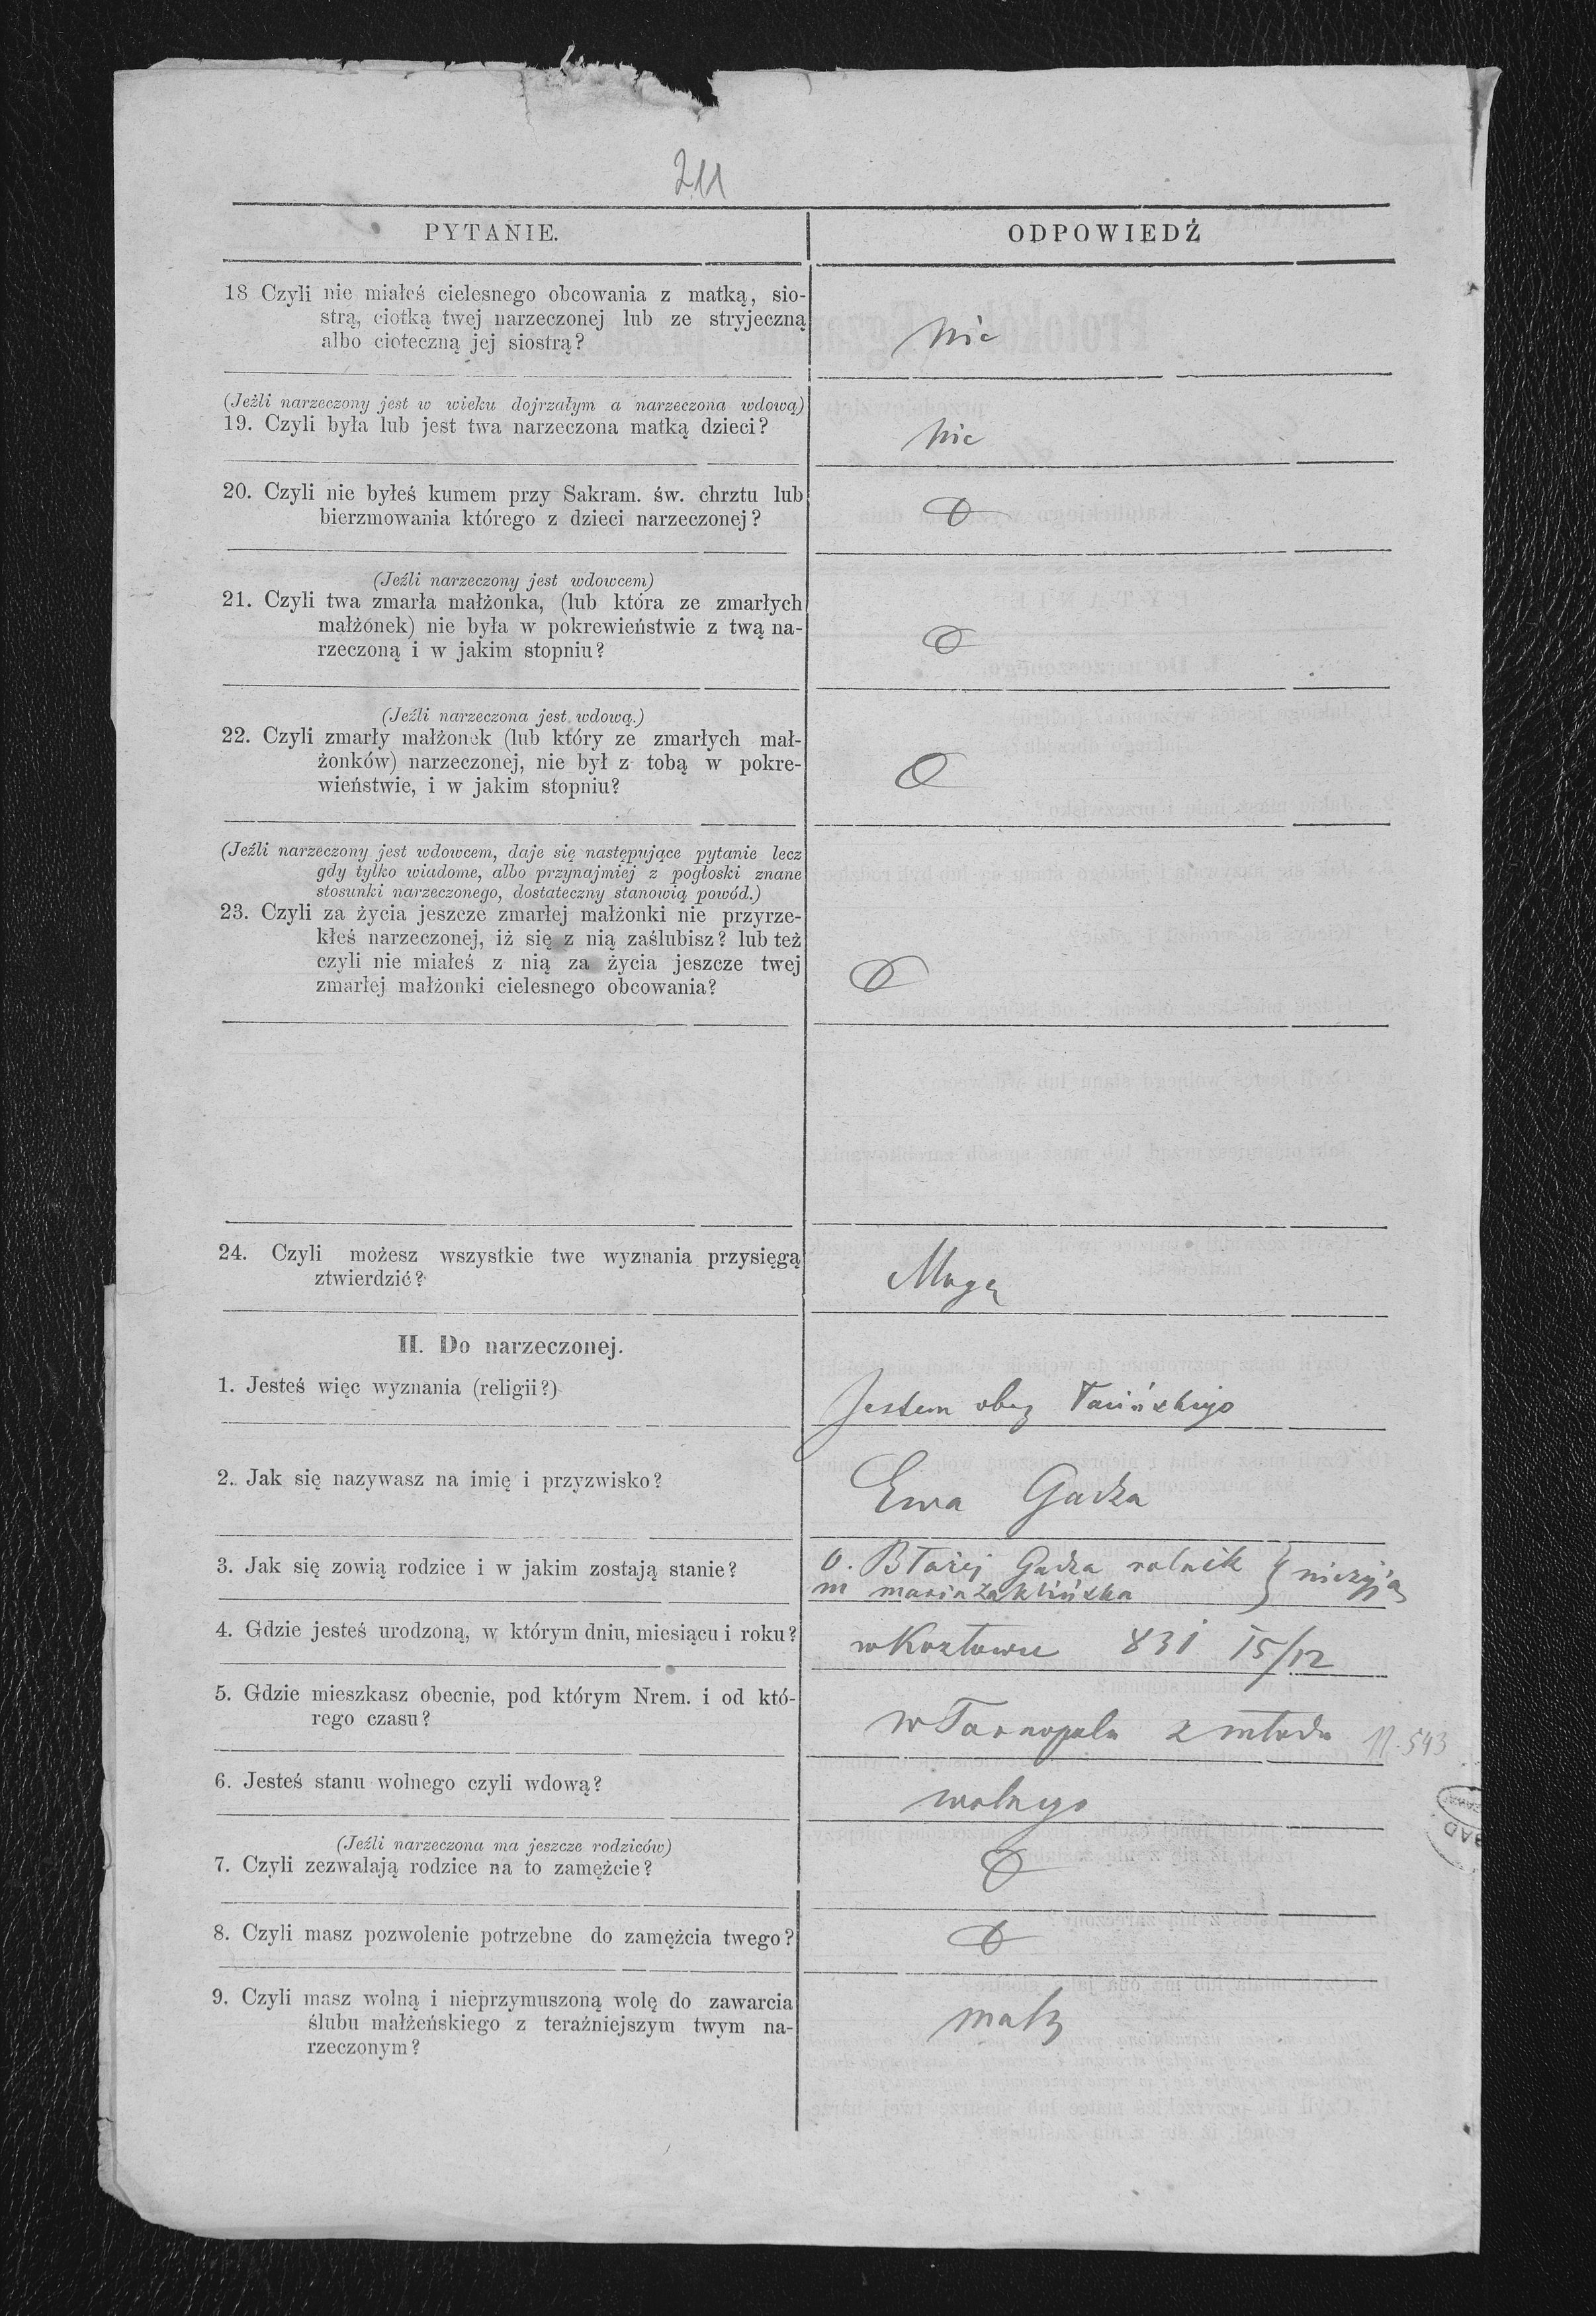 211
PYTANIE.
ODPOWIEDŹ
18 Czyli nie miałeś cielesnego obcowania z matką, sio-
strą, ciotką twej narzeczonej lub ze stryjeczną
albo cioteczną jej siostrą?
nie
(Jeżli narzeczony jest w wieku dojrzałym a narzeczona wdową)
19. Czyli była lub jest twa narzeczona matką dzieci?
nie
20. Czyli nie byłeś kumem przy Sakram. św. chrztu lub
bierzmowania którego z dzieci narzeczonej?
(Jeźli narzeczony jest wdowcem)
21. Czyli twa zmarła małżonka, (lub która ze zmarłych
małżónek) nie była w pokrewieństwie z twą na-
rzeczoną i w jakim stopniu?
(Jeźli narzeczona jest wdową.)
22. Czyli zmarły małżonek (lub który ze zmarłych mał-
żonków) narzeczonej, nie był z tobą w pokre-
wieństwie, i w jakim stopniu?
(Jeźli narzeczony jest wdowcem, daje się następujące pytanie lecz
gdy tylko wiadome, albo przynajmiej z pogłoski znane
stosunki narzeczonego, dostateczny stanowią powód.)
23. Czyli za życia jeszcze zmarłej małżonki nie przyrze-
kłeś narzeczonej, iż się z nią zaślubisz? lub też
czyli nie miałeś z nią za życia jeszcze twej
zmarłej małżonki cielesnego obcowania?
24. Czyli możesz wszystkie twe wyznania przysięgą
ztwierdzić?
Mogę
II. Do narzeczonej.
1. Jesteś więc wyznania (religii?)
Jestem obrz łacińskiego
2. Jak się nazywasz na imię i przyzwisko?
Ewa Gadza
3. Jak się zowią rodzice i w jakim zostają stanie?
O. Błażej Gadza rolnik } nieżyją
m maria Zaklińska
4. Gdzie jesteś urodzoną, w którym dniu, miesiącu i roku?
w Kozłowie 831 15/12
5. Gdzie mieszkasz obecnie, pod którym Nrem. i od któ-
rego czasu?
w Tarnopolu z młodu N. 543
6. Jesteś stanu wolnego czyli wdową?
wolnego
(Jeźli narzeczona ma jeszcze rodziców)
7. Czyli zezwalają rodzice na to zamężcie?
8. Czyli masz pozwolenie potrzebne do zamężcia twego?
9. Czyli masz wolną i nieprzymuszoną wolę do zawarcia
ślubu małżeńskiego z teraźniejszym twym na-
rzeczonym?